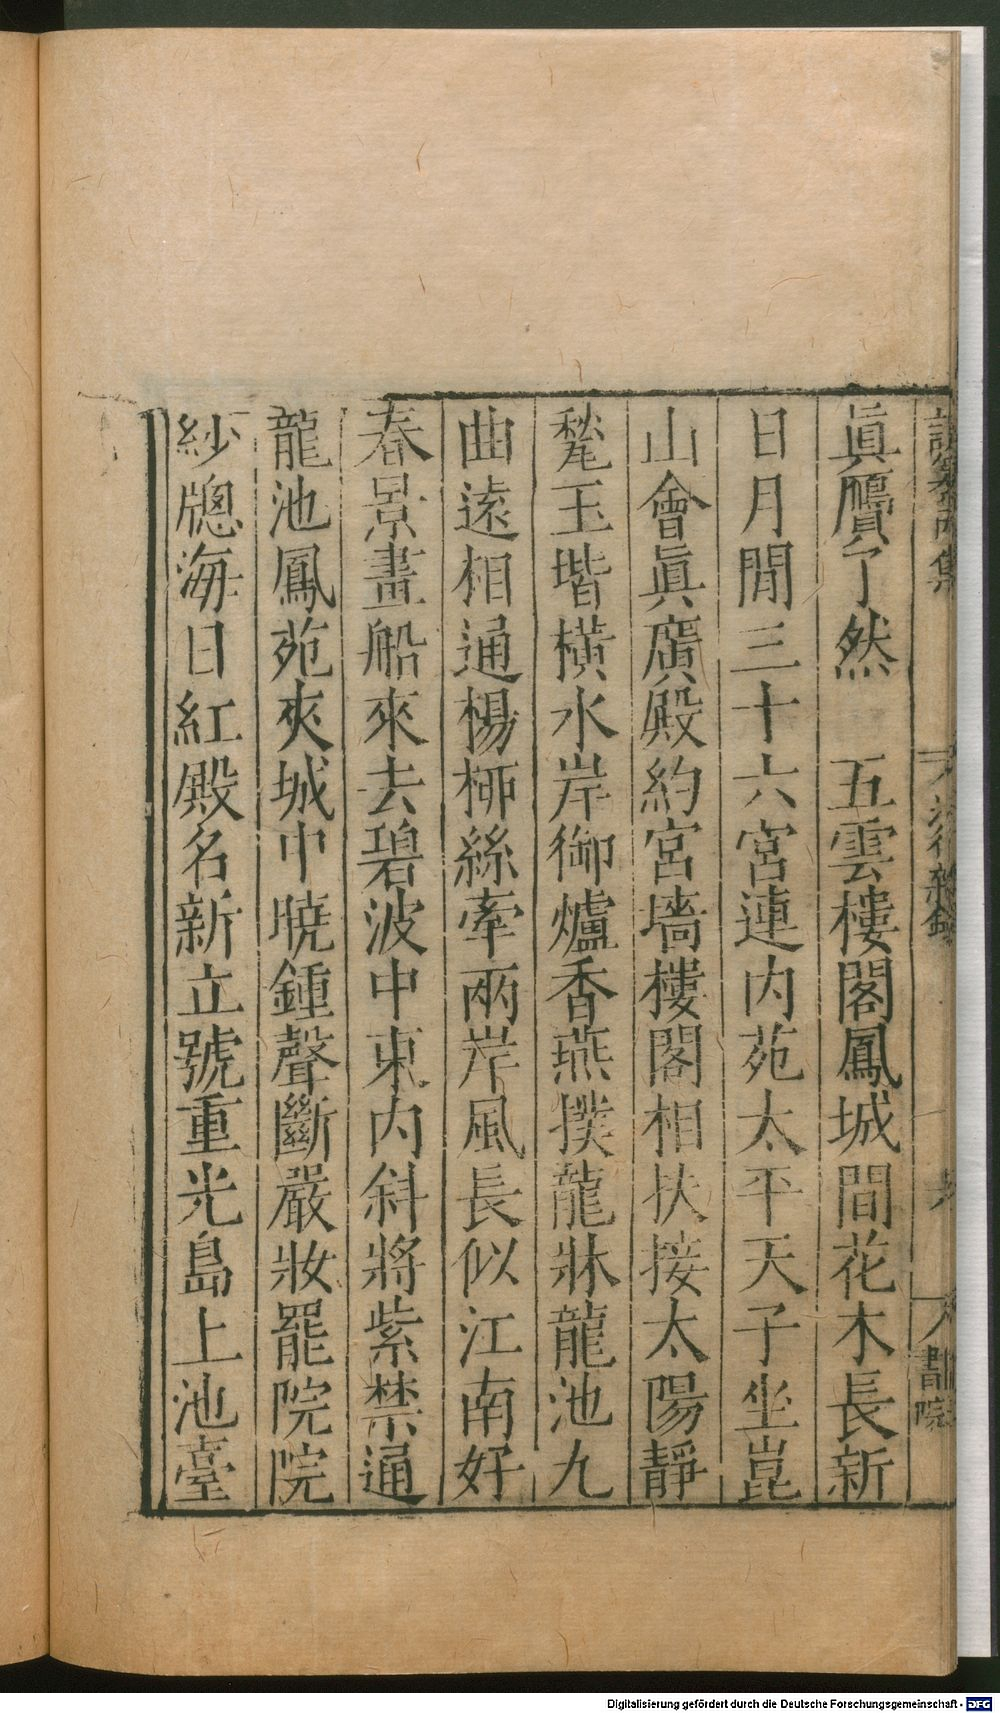 眞贋了然　五雲樓閣鳳城間花木長新
日月閒三十六宮連内苑太平天子坐崑
山會眞廣殿約宮墻樓閣相扶接太陽靜
甃玉堦橫水岸御爐香燕撲龍牀龍池九
曲遠相通楊桺絲牽兩岸風長似江南好
春景畫船來去碧波中東内斜將紫禁通
龍池鳳苑夾城中曉鍾聲斷嚴妝罷院院
紗牕海日紅殿名新立號重光島上池臺
書院
Digitalisierung gefördert durch die Deutsche Forschungsgemeinschaft - DFG